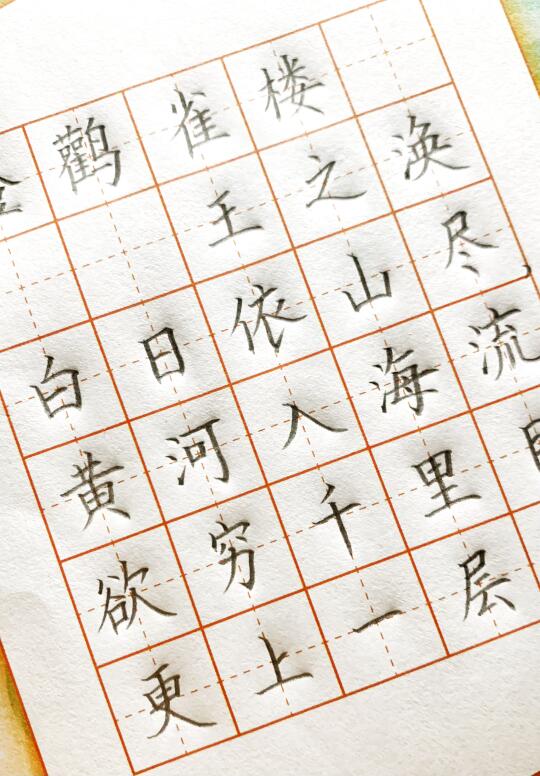 鹳雀楼
王之涣
白日依山尽
黄河入海流
欲穷千里
更上一层